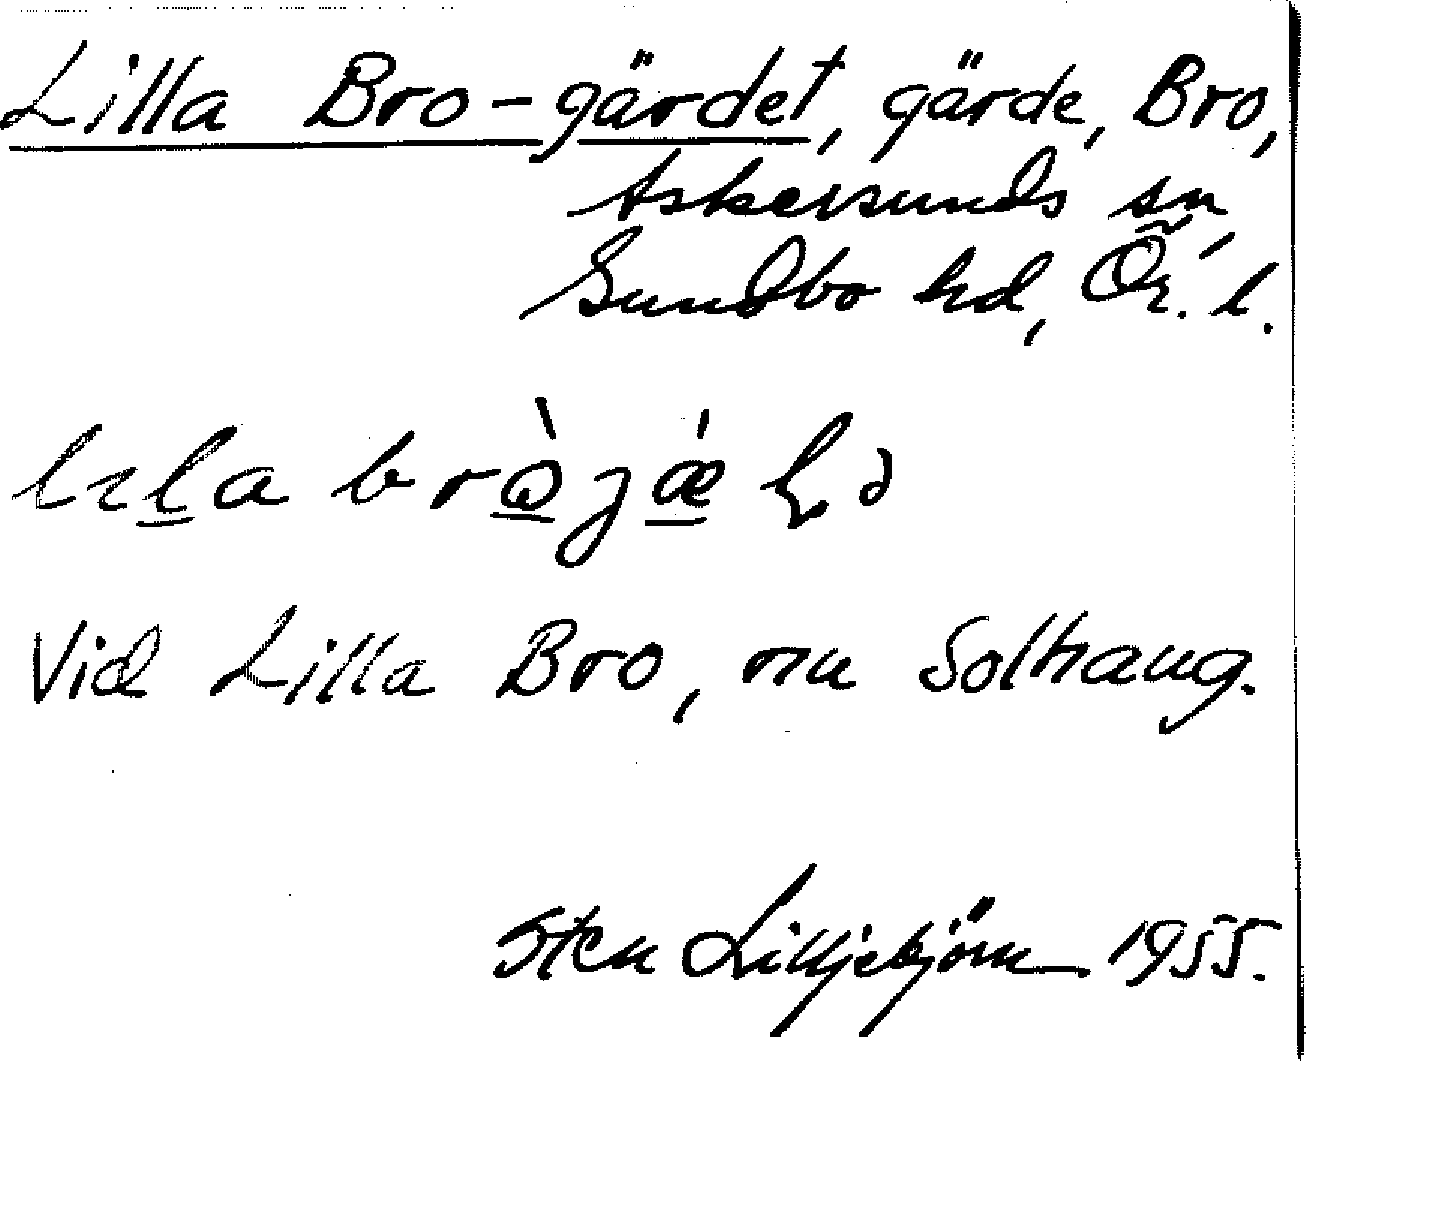 Lilla Bro-gärdet, gärde, Bro,
Askersunds sn,
Sundbo hd, Ör. l.
Vid Lilla Bro, nu Solhaug.
Sten Lilljebjörn 1955.